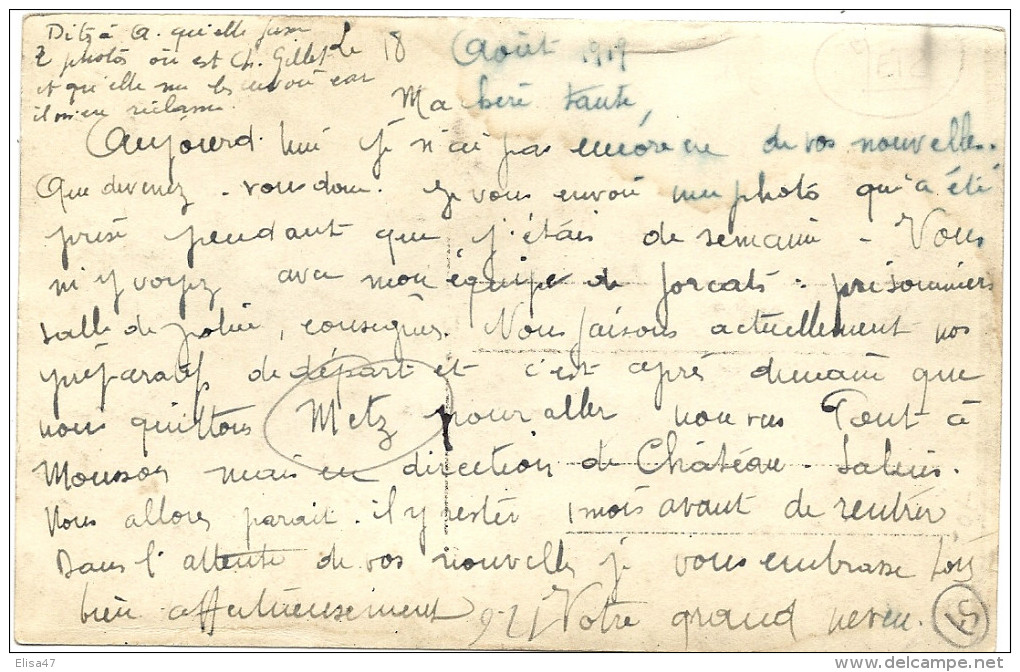 Dites à A. qu'elle fasse
2 photos où est Ch. Gillet
et qu'elle me les envoie car
il m'en réclame.
Le 18 Août 1919
Ma chère tante,
Aujourd'hui je n'ai pas encore eu de vos nouvelles.
Que devenez-vous donc. Je vous envoie une photo qui a été
prise pendant que j'étais de semaine - Vous
m'y voyez avec mon équipe de forcats - prisonniers
salle de police, consignés. Nous faisons actuellement nos
préparatifs de départ et c'est après demain que
nous quittons Metz pour aller non vers Pont à
Mousson mais en direction de Château-Salins.
Nous allons parait-il y rester 1 mois avant de rentrer
Dans l'attente de vos nouvelles je vous embrasse tous
bien affectueusement Votre grand neveu.
51
Elisa47
http://www.delcampe.net